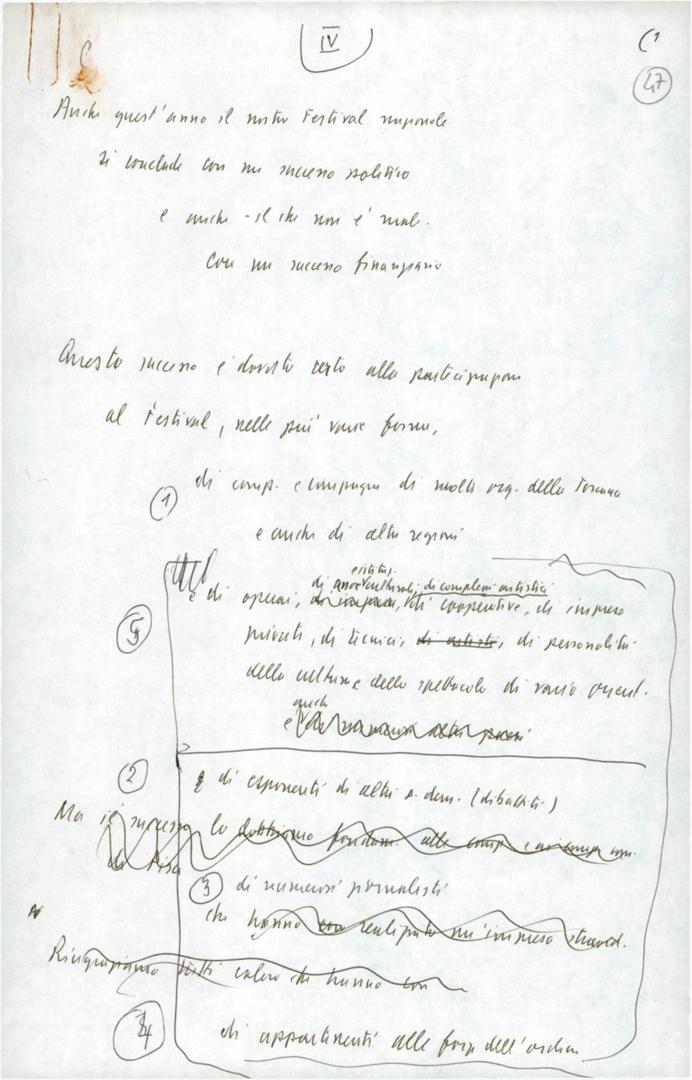 IV
47
Anche quest'anno il nostro Festival nazionale
si conclude con un successo politico
e anche - il che non è male.
Con un successo finanziario
Questo successo è dovuto certo alla partecipazione
al Festival, nelle più varie forme,
1 di comp. e compagne di molte org. della Toscana
e anche di altre regioni
di culturali, di complessi artistici
e di operai, di cooperative, di imprese
5 private, di tecnici, di artisti, di personalità
della cultura e dello spettacolo di vario orient.
anche
e di numerosi altri paesi
2 e di esponenti di altri p. dem. (dibattiti)
Ma il successo lo dobbiamo fondam. alle comp. e ai comp. com.
di Pisa
3 di numerosi giornalisti
che hanno con realizzato un'impresa straord.
Ringraziamo tutti coloro che hanno con
4 di appartenenti alle forze dell'ordine